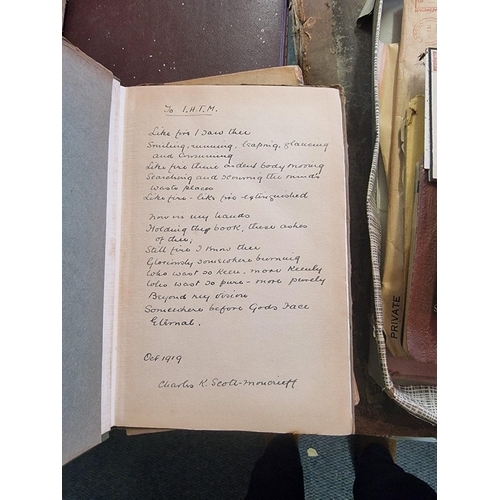 To I.H.T.M.
Like fire I saw thee
Smiling, running, leaping, glancing
and consuming
Like fire thine ardent body moving
Searching and scouring the mind's
waste places
Like fire - like fire extinguished
Now in my hands
Holding thy book, these ashes
of thee,
Still fire I know thee
Gloriously somewhere burning
Who wast so keen, more keenly
Who wast so pure - more purely
Beyond my vision
Somewhere before Gods Face
Eternal.
Oct 1919
Charles K. Scott-Moncrieff
PRIVATE